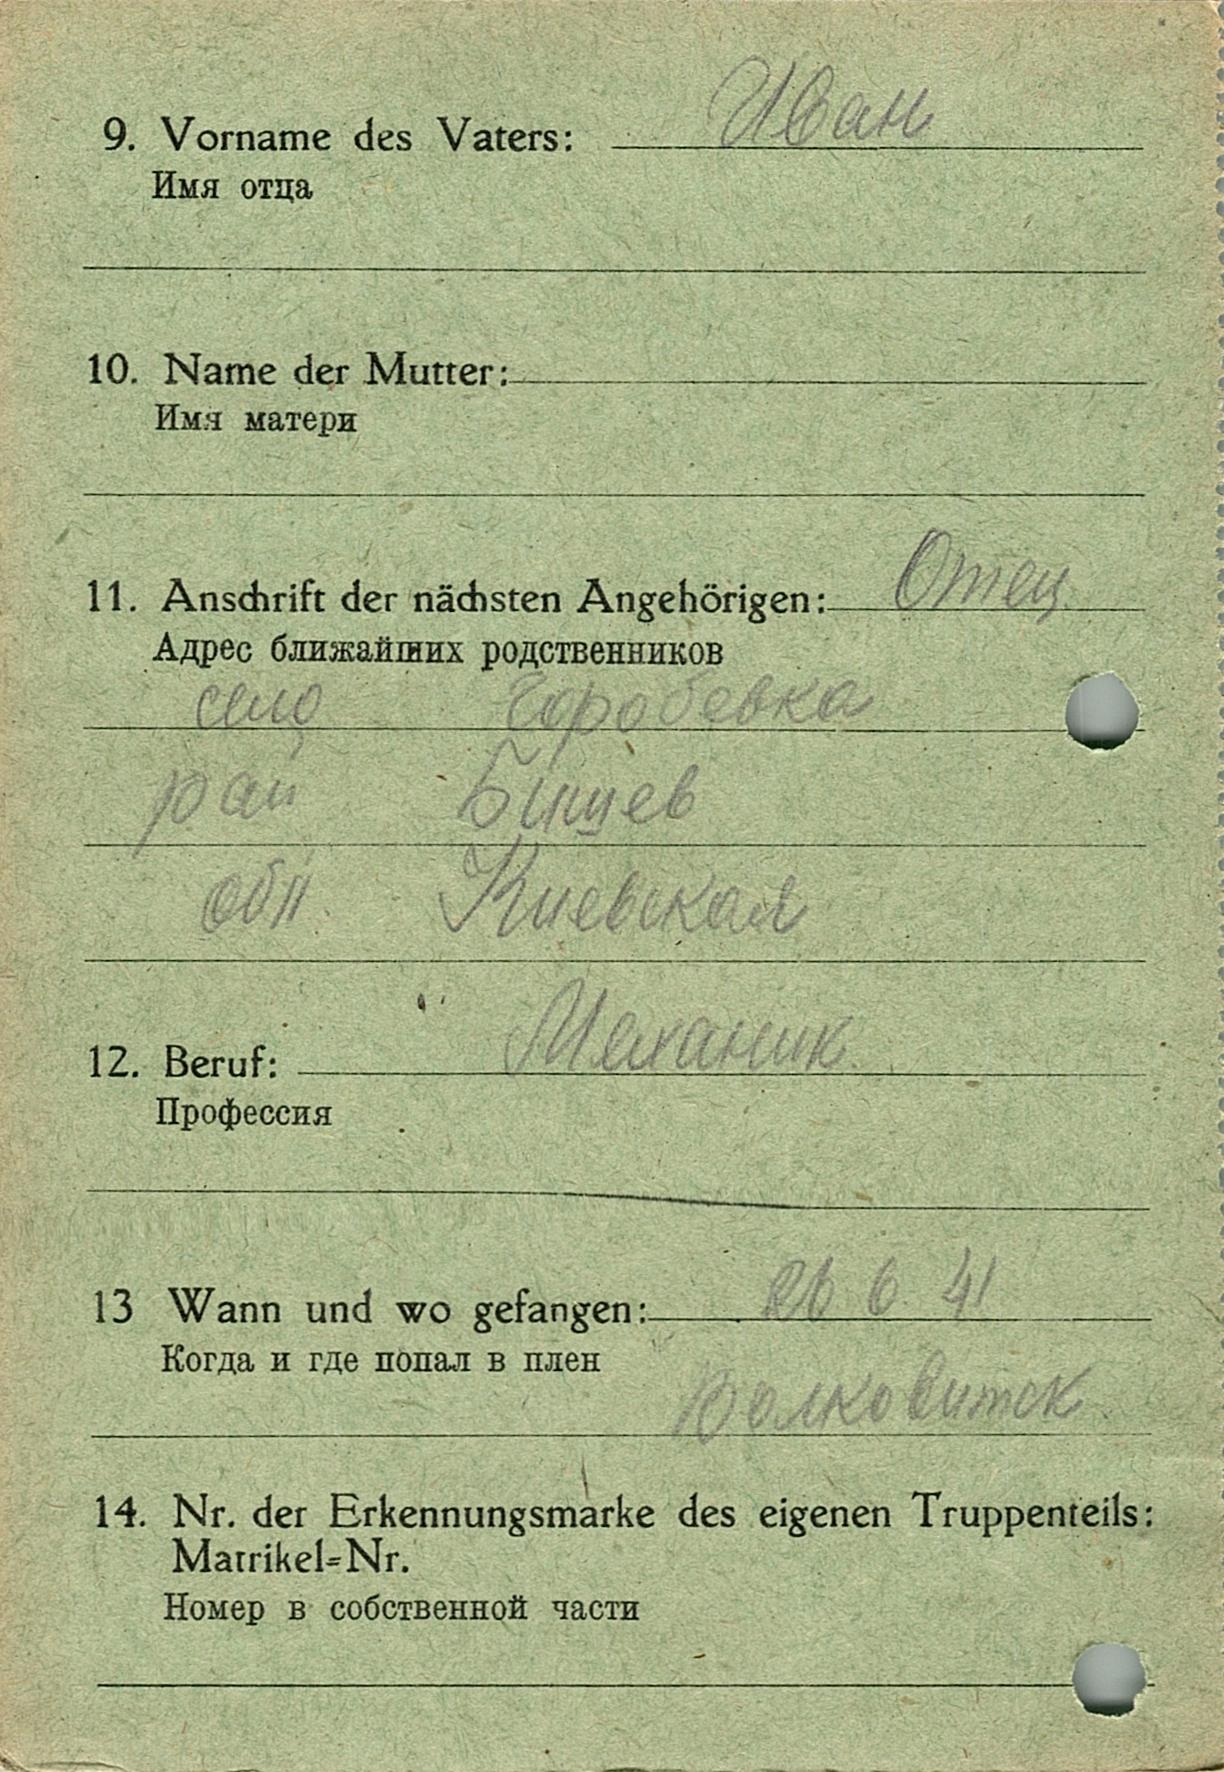 9. Vorname des Vaters: Иван
Имя отца
10. Name der Mutter:
Имя матери
11. Anschrift der nächsten Angehörigen: Отец
Адрес ближайших родственников
село Горобевка
рай Бишев
обл. Киевская
12. Beruf: Механик
Профессия
13 Wann und wo gefangen: 26 6 41
Когда и где попал в плен
Волковитск
14. Nr. der Erkennungsmarke des eigenen Truppenteils:
Matrikel=Nr.
Номер в собственной части